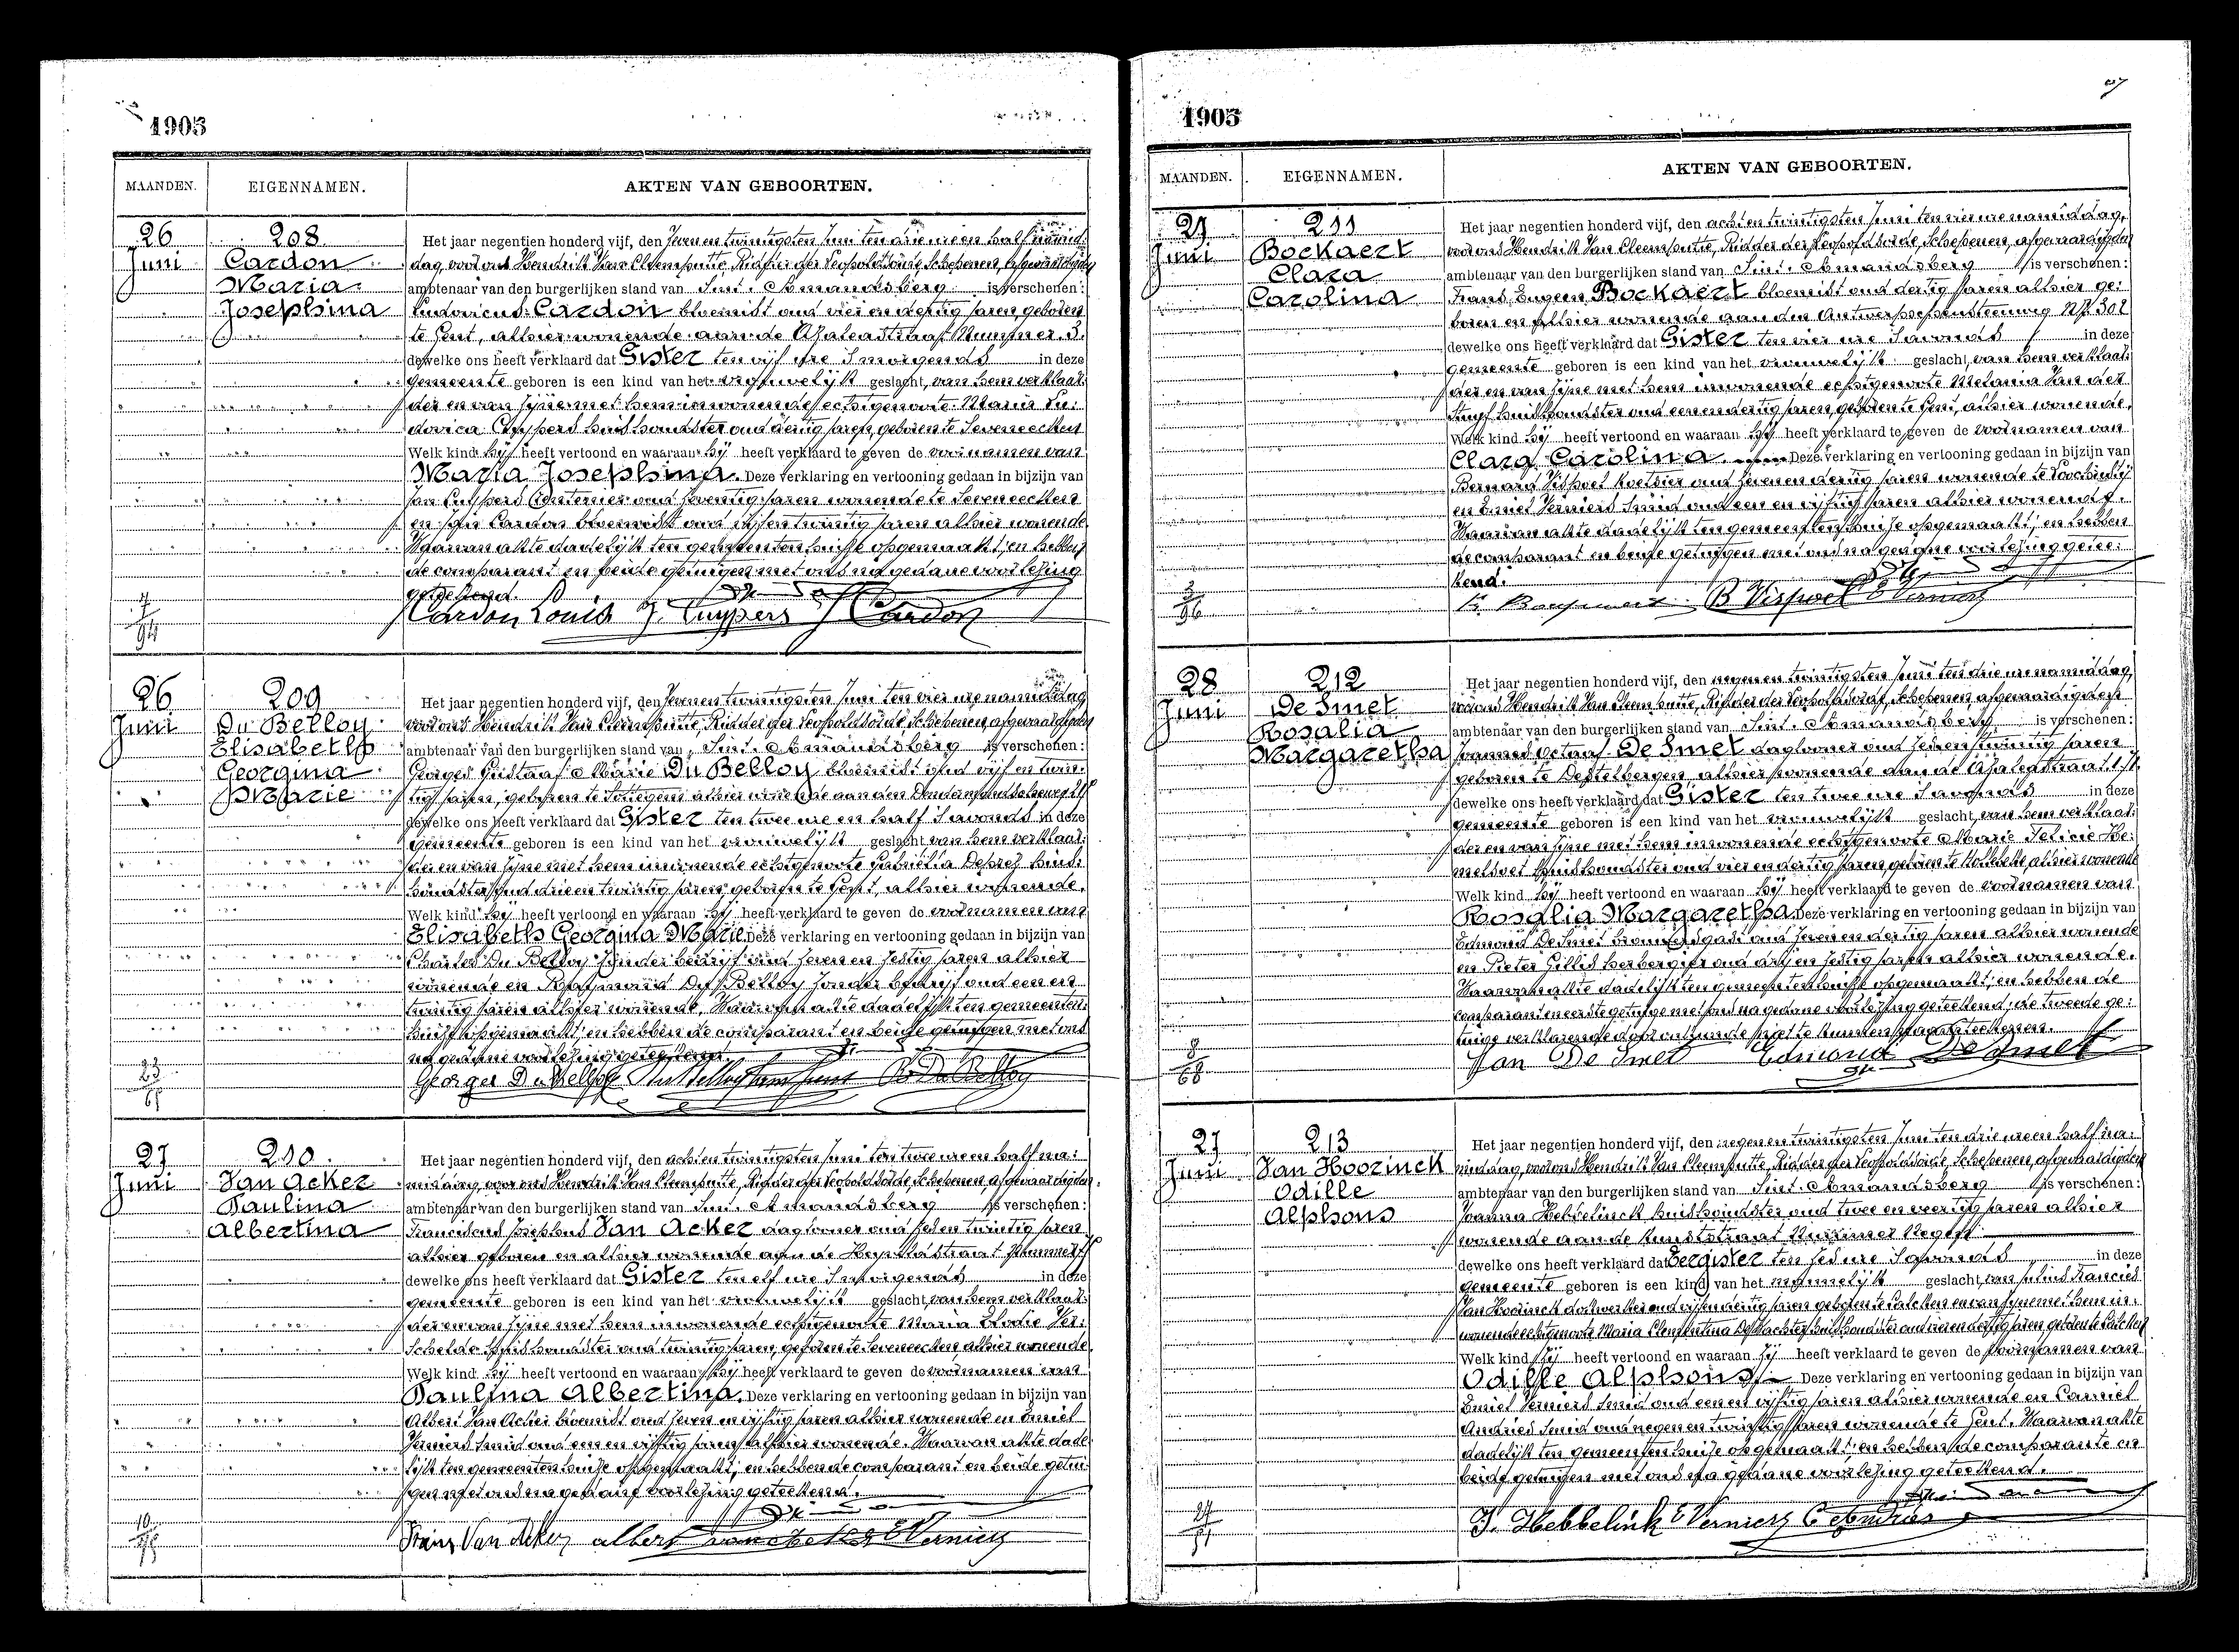 1905
MAANDEN. EIGENNAMEN. AKTEN VAN GEBOORTEN.
26 Juni
208
Cardon
Maria
Josephina
Het jaar negentien honderd vijf, den zeven en twintigsten Juni ten drie ure en half namid:
dag, voor ons Hendrik Van Cleemputte, Ridder der Leopoldsorde, Schepenen, afgevaardigden
ambtenaar van den burgerlijken stand van Sint-Amandsberg is verschenen:
Ludovicus Cardon bloemist oud vier en dertig jaren, geboren
te Gent, alhier wonende aan de Azaleastraat Nummer 3.
dewelke ons heeft verklaard dat Gister ten vijf ure 's morgends in deze
gemeente geboren is een kind van het vrouwelijk geslacht, van hem verklaar:
der en van zijne met hem inwonende echtgenoote Maria Lu:
dovica Cuypers huishoudster oud dertig jaren, geboren te Seveneecken
Welk kind hij heeft vertoond en waaraan hij heeft verklaard te geven de voornamen van
Maria Josephina. Deze verklaring en vertooning gedaan in bijzijn van
Jan Cuypers oud zeventig jaren wonende te Seveneecken
en Jan Cardon bloemist oud vijf en twintig jaren alhier wonende
Waarvan akte dadelijk ten gemeentenhuise opgemaakt; en hebben
de comparant en beide getuigen met ons na gedane voorlezing
geteekend.
Cardon Louis J. Cuypers J Cardon
26 Juni
209
Du Belloy
Elisabeth
Georgina
Marie
Het jaar negentien honderd vijf, den zeven en twintigsten Juni ten vier ure namiddag
voor ons Hendrik Van Cleemputte, Ridder der Leopoldsorde, Schepenen, afgevaardigden
ambtenaar van den burgerlijken stand van Sint-Amandsberg is verschenen:
Georges Gustaaf Marie Du Belloy bloemist oud vijf en twin:
tig jaren, geboren te alhier wonende aan den
dewelke ons heeft verklaard dat Gister ten twee ure en half 's avonds in deze
gemeente geboren is een kind van het vrouwelijk geslacht van hem verklaar:
der en van zijne met hem inwonende echtgenoote Gabriëlla Deprez huis:
houdster oud drie en twintig jaren geboren te Gent, alhier wonende.
Welk kind hij heeft vertoond en waaraan hij heeft verklaard te geven de voornamen van
Elisabeth Georgina Marie. Deze verklaring en vertooning gedaan in bijzijn van
Charles Du Belloy zonder bedrijf oud zeven en zestig jaren alhier
wonende en Raymond Du Belloy zonder bedrijf oud een en
twintig jaren alhier wonende. Waarvan akte dadelijk ten gemeenten:
huise opgemaakt; en hebben de comparant en beide getuigen met ons
na gedane voorlezing geteekend.
Georges Du Belloy R. Du Belloy
27 Juni
210
Van Acker
Paulina
Albertina
Het jaar negentien honderd vijf, den acht en twintigsten Juni ten twee ure en half na:
middag, voor ons Hendrik Van Cleemputte, Ridder der Leopoldsorde, Schepenen, afgevaardigden
ambtenaar van den burgerlijken stand van Sint-Amandsberg is verschenen:
Franciscus Josephus Van Acker daglooner oud zes en twintig jaren
alhier geboren en alhier wonende aan de
dewelke ons heeft verklaard dat Gister ten elf ure 's morgends in deze
gemeente geboren is een kind van het vrouwelijk geslacht, van hem verklaar:
der en van zijne met hem inwonende echtgenoote Maria Elodie Ver:
schelde huishoudster oud twintig jaren, geboren te Seveneecken, alhier wonende.
Welk kind hij heeft vertoond en waaraan hij heeft verklaard te geven de voornamen van
Paulina Albertina. Deze verklaring en vertooning gedaan in bijzijn van
Albert Van Acker bloemist oud zeven en vijftig jaren alhier wonende en Emiel
Verniers smid oud een en vijftig jaren alhier wonende. Waarvan akte dade:
lijk ten gemeentenhuise opgemaakt; en hebben de comparant en beide getui:
gen met ons na gedane voorlezing geteekend.
Frans Van Acker albert van acker E Verniers
1905
MAANDEN. EIGENNAMEN. AKTEN VAN GEBOORTEN.
27 Juni
211
Bockaert
Clara
Carolina
Het jaar negentien honderd vijf, den acht en twintigsten Juni ten vier ure namiddag,
voor ons Hendrik Van Cleemputte, Ridder der Leopoldsorde, Schepenen, afgevaardigden
ambtenaar van den burgerlijken stand van Sint-Amandsberg is verschenen:
Frans Eugeen Bockaert bloemist oud dertig jaren alhier ge:
boren en alhier wonende aan den Antwerpschensteenweg
dewelke ons heeft verklaard dat Gister ten vier ure 's avonds in deze
gemeente geboren is een kind van het vrouwelijk geslacht, van hem verklaar:
der en van zijne met hem inwonende echtgenoote Melania Van der
huishoudster oud een en dertig jaren, geboren te Gent, alhier wonende.
Welk kind hij heeft vertoond en waaraan hij heeft verklaard te geven de voornamen van
Clara Carolina. Deze verklaring en vertooning gedaan in bijzijn van
Bernard Vispoel oud zeven en dertig jaren wonende te Loochristy
en Emiel Verniers smid oud een en vijftig jaren alhier wonende.
Waarvan akte dadelijk ten gemeentenhuise opgemaakt; en hebben
de comparant en beide getuigen met ons na gedane voorlezing getee:
kend.
B Vispoel E Verniers
28 Juni
212
De Smet
Rosalia
Margaretha
Het jaar negentien honderd vijf, den negen en twintigsten Juni ten drie ure namiddag,
voor ons Hendrik Van Cleemputte, Ridder der Leopoldsorde, Schepenen afgevaardigden
ambtenaar van den burgerlijken stand van Sint-Amandsberg is verschenen:
Joannes Octaaf De Smet daglooner oud zes en twintig jaren
geboren te Destelbergen alhier wonende aan de Azaleastraat
dewelke ons heeft verklaard dat Gister ten twee ure 's avonds in deze
gemeente geboren is een kind van het vrouwelijk geslacht, van hem verklaar:
der en van zijne met hem inwonende echtgenoote Marie Felicie He:
melsoet huishoudster oud vier en dertig jaren, geboren te alhier wonende
Welk kind hij heeft vertoond en waaraan hij heeft verklaard te geven de voornamen van
Rosalia Margaretha. Deze verklaring en vertooning gedaan in bijzijn van
Edmond De Smet oud zeven en dertig jaren alhier wonende
en Pieter Gillis herbergier oud drij en zestig jaren alhier wonende.
Waarvan akte dadelijk ten gemeentenhuise opgemaakt; en hebben de
comparant en eerste getuige met ons na gedane voorlezing geteekend; de tweede ge:
tuige verklarende door onkunde niet te kunnen teekenen.
Jan De Smet Edmond De Smet
27 Juni
213
Van Hoorinck
Odille
Alphons
Het jaar negentien honderd vijf, den negen en twintigsten Juni ten drie ure en half na:
middag, voor ons Hendrik Van Cleemputte, Ridder der Leopoldsorde, Schepenen, afgevaardigden
ambtenaar van den burgerlijken stand van Sint-Amandsberg is verschenen:
Joanna Hebbelinck huishoudster oud twee en veertig jaren alhier
wonende aan de Kunststraat Nummer Negen
dewelke ons heeft verklaard dat Eergister ten zes ure 's avonds in deze
gemeente geboren is een kind van het mannelijk geslacht, van Julius Francies
Van Hoorinck dokwerker oud vijf en dertig jaren geboren te Calcken en van zijne met hem in:
wonende echtgenoote Maria Clementina De Wachter huishoudster oud vier en dertig jaren, geboren te Calcken
Welk kind zij heeft vertoond en waaraan zij heeft verklaard te geven de voornamen van
Odille Alphons. Deze verklaring en vertooning gedaan in bijzijn van
Emiel Verniers smid oud een en vijftig jaren alhier wonende en Camiel
Andries smid oud negen en twintig jaren wonende te Gent. Waarvan akte
dadelijk ten gemeentenhuise opgemaakt; en hebben de comparante en
beide getuigen met ons na gedane voorlezing geteekend.
J. Hebbelinck E Verniers C Andries